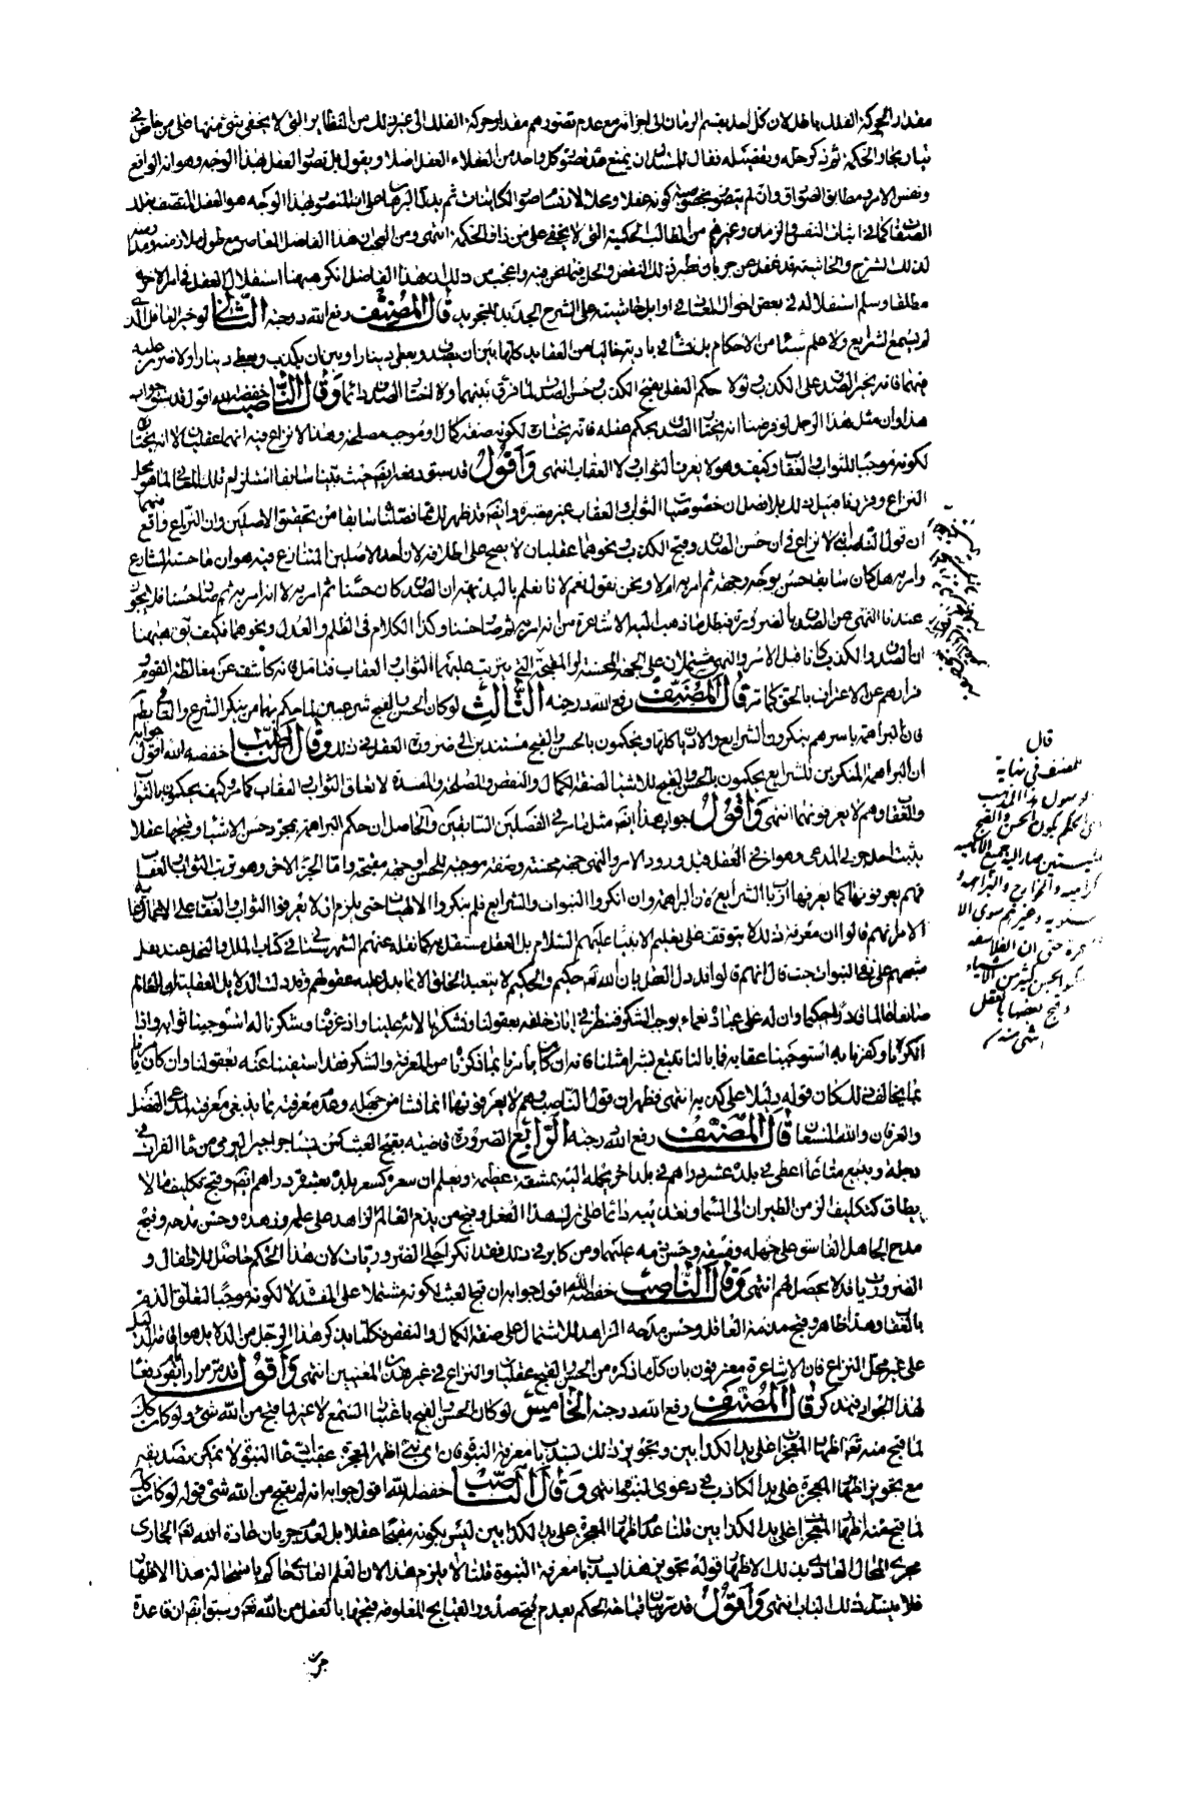 مقدار الحركة الفلك باطل لان كل احد يقسم الزمان الى اجزائه مع عدم تصورهم مقدار حركة الفلك الى غير ذلك من النظاير التى لا يخفى شئ منها على من خاض فى
ثم ذكر حله وتفصيله فقال للمستدل ان يمنع عدم تصور كل واحد من العقلاء العقل اصلا ويقول بل تصور العقل بهذا الوجه وهو انه الواقع
ونفس الامر ومطابق الصوادق وان لم يتصور بخصوصية كونه عقلا ومحلا لارتسام صور الكاينات ثم يدل البرهان على ان المتصور بهذا الوجه هو العقل المتصف بتلك
الصفات كما فى اثبات النفس والزمان وغيرهم من المطالب الحكمية التى لا يخفى على من ذاق الحكمة انتهى ومن العجب ان هذا الفاضل القاصر مع طول ملازمته
لذلك الشرح والحاشية قد غفل عن جريان نظير ذلك النقض والحل فيما نحن فيه واعجب من ذلك ان هذا الفاضل انكر ههنا استقلال العقل فى امر الاخرة
مطلقا وسلم استقلاله فى بعض احوال المعاد فى اوايل حاشيته على الشرح الجديد للتجريد قال المصنف رفع الله درجته الثانى لو خير العاقل الذى
لم يسمع الشرايع ولا علم شيئا من الاحكام بل نشأ فى بادية خاليا من العقايد كلها بين ان يصدق ويعطى دينارا وبين ان يكذب ويعطى دينارا ولا ضرر عليه
فيهما فانه يتخير الصدق على الكذب ولولا حكم العقل بقبح الكذب وحسن الصدق لما فرق بينهما ولا اختار الصدق دائما وقال الناصب خفضه الله اقول قد سبق جواب
هذا وان مثل هذا الرجل لو فرضنا انه يختار الصدق بحكم عقله فانه يختاره لكونه صفة كمال او موجب مصلحة وهذا لا نزاع فيه انهما عقليان لا انه يختاره
لكونه موجبا للثواب والعقاب وكيف وهو لا يعرف الثواب ولا العقاب انتهى واقول قد سبق دفعه ايضا حيث بينا سابقا استلزام تلك المعانى لما هو محل
النزاع ومن تفاصيل ذلك بل اصل ان خصوصية الثواب والعقاب غير معتبرة وايضا قد ظهر لك مما فصلنا سابقا من تحقيق الاصلين وان النزاع واقع منهما
ان قول الناصب انه لا نزاع فى ان حسن الصدق وقبح الكذب ونحوهما عقليان لا يصح على اطلاقه لان احد الاصلين المتنازع فيه هو ان ما حسنه الشارع
وامر به هل كان سابقا حسن بوجه وجهة ثم امر به ام لا ونحن نقول نعم لانا نعلم بالبديهة ان الصدق كان حسنا ثم امر به لا انه امر به ثم صار حسنا فلا يجوز
عندنا النهى عن الصدق بالضرورة فبطل ما ذهب اليه الاشاعرة من انه امر به ثم صار حسنا وكذا الكلام فى الظلم والعدل ونحوهما فكيف يقول ههنا
ان الصدق والكذب كانا قبل الامر والنهى مشتملان على الجهة المحسنة او المقبحة التى يترتب عليهما الثواب والعقاب فتأمل فانه كاشفة عن مغالطة القوم و
فرارهم عن الاعتراف بالحق كما تر قال المصنف رفع الله درجته الثالث لو كان الحسن والقبح شرعيين لما حكم بهما من ينكر الشرع والتالى باطل
فان البراهمة باسرهم ينكرون الشرايع والاديان كلها ويحكمون بالحسن والقبح مستندين الى ضرورة العقل فى ذلك وقال الناصب خفضه الله اقول جوابه
ان البراهمة المنكرين للشرايع يحكمون بالحسن والقبح للاشياء لصفة الكمال والنقص والمصلحة والمفسدة لا لتعلق الثواب والعقاب كما مر وكيف يحكمون بالثواب
والعقاب وهم لا يعرفونهما انتهى واقول جواب هذا ايضا مثل ما مر فى الفصلين السابقين والحاصل ان حكم البراهمة بمجرد حسن الاشياء وقبحها عقلا
يثبت احد جزئى المدعى وهو ان فى الفعل قبل ورود الامر والنهى جهة محسنة وصفة موجبة للحسن او جهة مقبحة واما الجزء الاخر وهو ترتب الثواب والعقاب
فهم يعرفونها كما يعرفها ارباب الشرايع فان البراهمة وان انكروا النبوات والشرايع فلم ينكروا الالهيات حتى يلزم ان لا يعرفوا الثواب والعقاب على الاعمال
الامر انهم قالوا ان معرفة ذلك لا يتوقف على تعليم الانبياء عليهم السلام بل العقل مستقل به كما نقله عنهم الشهرستانى فى كتاب الملل والنحل عند نقل
شبههم على نفى النبوات حيث قال انهم قالوا قد دل العقل بان الله تعالى حكيم والحكيم لا يتعبد الخلق الا بما يدل عليه عقولهم وقد دلت الدلايل العقلية على ان للعالم
صانعا عالما قادرا حكيما وان له على عباده نعماء يوجب الشكر فننظر فى ايات خلقه بعقولنا ونشكره بالائه علينا واذا عرفناه وشكرنا له استوجبنا ثوابه واذا
انكرناه وكفرنا به استوجبنا عقابه فما بالنا نتبع بشرا مثلنا فانه ان كان يأمرنا بما ذكرناه من المعرفة والشكر فقد استغنينا عنه بعقولنا وان كان يأمرنا
بما يخالف ذلك كان قوله دليلا على كذبه انتهى فظهر ان قول الناصب وهم لا يعرفونها انما نشأ من جهله وعدم معرفته بما ينبغى معرفته لمدعى الفضل
والعرفان والله المستعان قال المصنف رفع الله درجته الرابع الضرورة قاضية بقبح العبث كمن يستأجر اجيرا ليرمى من ماء الفرات فى
دجلة ويبيع متاعا اعطى فى بلده عشرة دراهم فى بلد اخر يحمله اليه بمشقة عظيمة ويعلم ان سعره كسعر بلده بعشرة دراهم ايضا وقبح تكليف ما لا
يطاق كتكليف الزمن الطيران الى السماء وتعذيبه دائما على ترك هذا الفعل وقبح من يذم العالم الزاهد على علمه وزهده وحسن مدحه وقبح
مدح الجاهل الفاسق على جهله وفسقه وحسن ذمه عليهما ومن كابر فى ذلك فقد انكر اجلى الضروريات لان هذا الحكم حاصل للاطفال و
الضروريات قد لا يحصل لهم انتهى وقال الناصب خفضه الله اقول جوابه ان قبح العبث لكونه مشتملا على المفسدة لا لكونه موجبا لتعلق الذم
بالعقاب وهذا ظاهر وقبح مذمة العاقل وحسن مدحه الزاهد للاشتمال على صفة الكمال والنقص فكلما يذكر هذا الرجل من الدلايل هو اقامة الدليل
على غير محل النزاع فان الاشاعرة معترفون بان كل ما ذكره من الحسن والقبح عقليان والنزاع فى غير هذين المعنيين انتهى واقول قد مر مرارا ايضا
لهذا الجواب فتذكر قال المصنف رفع الله درجته الخامس لو كان الحسن والقبح باعتبار السمع لا غير لما قبح من الله شئ ولو كان كذلك
لما قبح منه تعالى اظهار المعجزات على يد الكذابين وتجويز ذلك يسد باب معرفة النبوة فان اى نبى اظهر المعجزة عقيب ادعاء النبوة لا يمكن تصديقه
مع تجويز اظهار المعجزة على يد الكاذب فى دعوى النبوة انتهى وقال الناصب خفضه الله اقول جوابه انه لم يقبح من الله شئ قوله لو كان كذلك
لما قبح منه اظهار المعجزات على يد الكذابين قلنا عدم اظهار المعجزة على يد الكذابين ليس بكونه مقبحا عقلا بل لعدم جريان عادة الله تعالى الجارى
مجرى المحال العادى بذلك الاظهار قوله تجويز هذا يسد باب معرفة النبوة قلنا لا يلزم هذا لان العلم العادى حاكم باستحالة هذا الاظهار
فلا ينسد ذلك الباب انتهى واقول قد مر بيان قباحة الحكم بعدم قبح صدور القبايح المعلومة قبحها بالعقل من الله تعالى وسبق ايضا ان قاعدة
جريان
قال
المصنف فى نهاية
الحكم بكون الحسن والقبح
عقليين صار اليه جميع الامامية
والكرامية والخوارج والبراهمة و
الثنوية وغيرهم سوى الا
شاعرة حتى ان الفلاسفة
حكموا بحسن كثير من الاشياء
وقبح بعضها بالعقل
انتهى منه